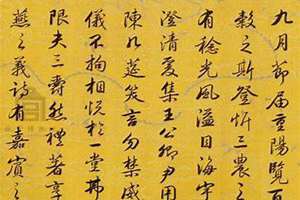 九月節届重陽覽百
穀之斯登忻三農之
有稔光風溢目海宇
澄清爰集王公卿尹用
陳几筵笑言勿禁威
儀不拘相悦於一堂莆
限夫三壽然禮著享
燕之義詩有嘉賓之